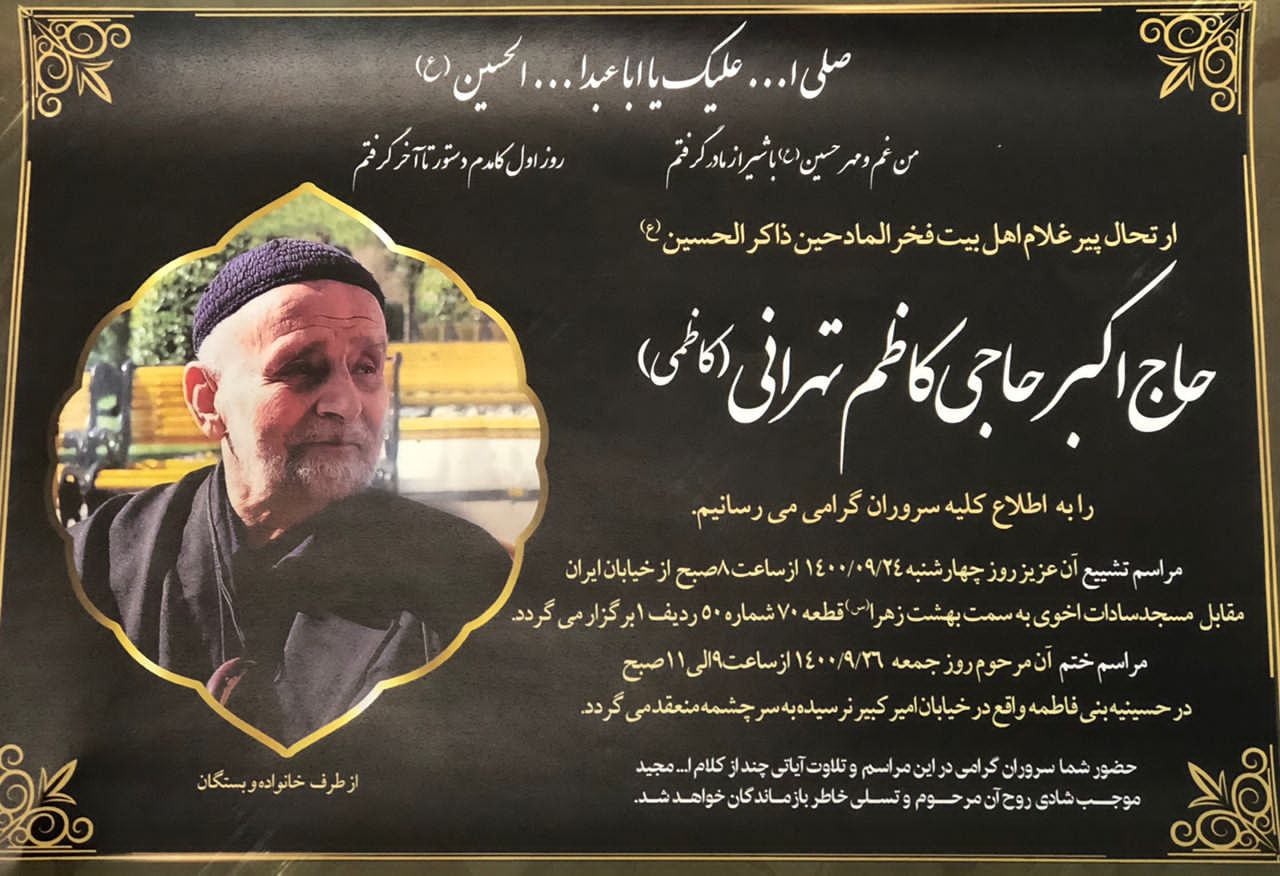 صلی ا... علیک یا ابا عبدا... الحسین (ع)
من غم و مهر حسین (ع) با شیر از مادر گرفتم روز اول کامدم دستور تا آخر گرفتم
ارتحال پیر غلام اهل بیت فخر المادحین ذاکر الحسین (ع)
حاج اکبر حاجی کاظم تهرانی (کاظمی)
را به اطلاع کلیه سروران گرامی می رسانیم.
مراسم تشییع آن عزیز روز چهارشنبه ۱۴۰۰/۰۹/۲۴ از ساعت ۸ صبح از خیابان ایران
مقابل مسجد سادات اخوی به سمت بهشت زهرا (س) قطعه ۷۰ شماره ۵۰ ردیف ۱ برگزار می گردد.
مراسم ختم آن مرحوم روز جمعه ۱۴۰۰/۹/۲۶ از ساعت ۹ الی ۱۱ صبح
در حسینیه بنی فاطمه واقع در خیابان امیر کبیر نرسیده به سرچشمه منعقد می گردد.
حضور شما سروران گرامی در این مراسم و تلاوت آیاتی چند از کلام ا... مجید
موجب شادی روح آن مرحوم و تسلی خاطر بازماندگان خواهد شد.
از طرف خانواده و بستگان